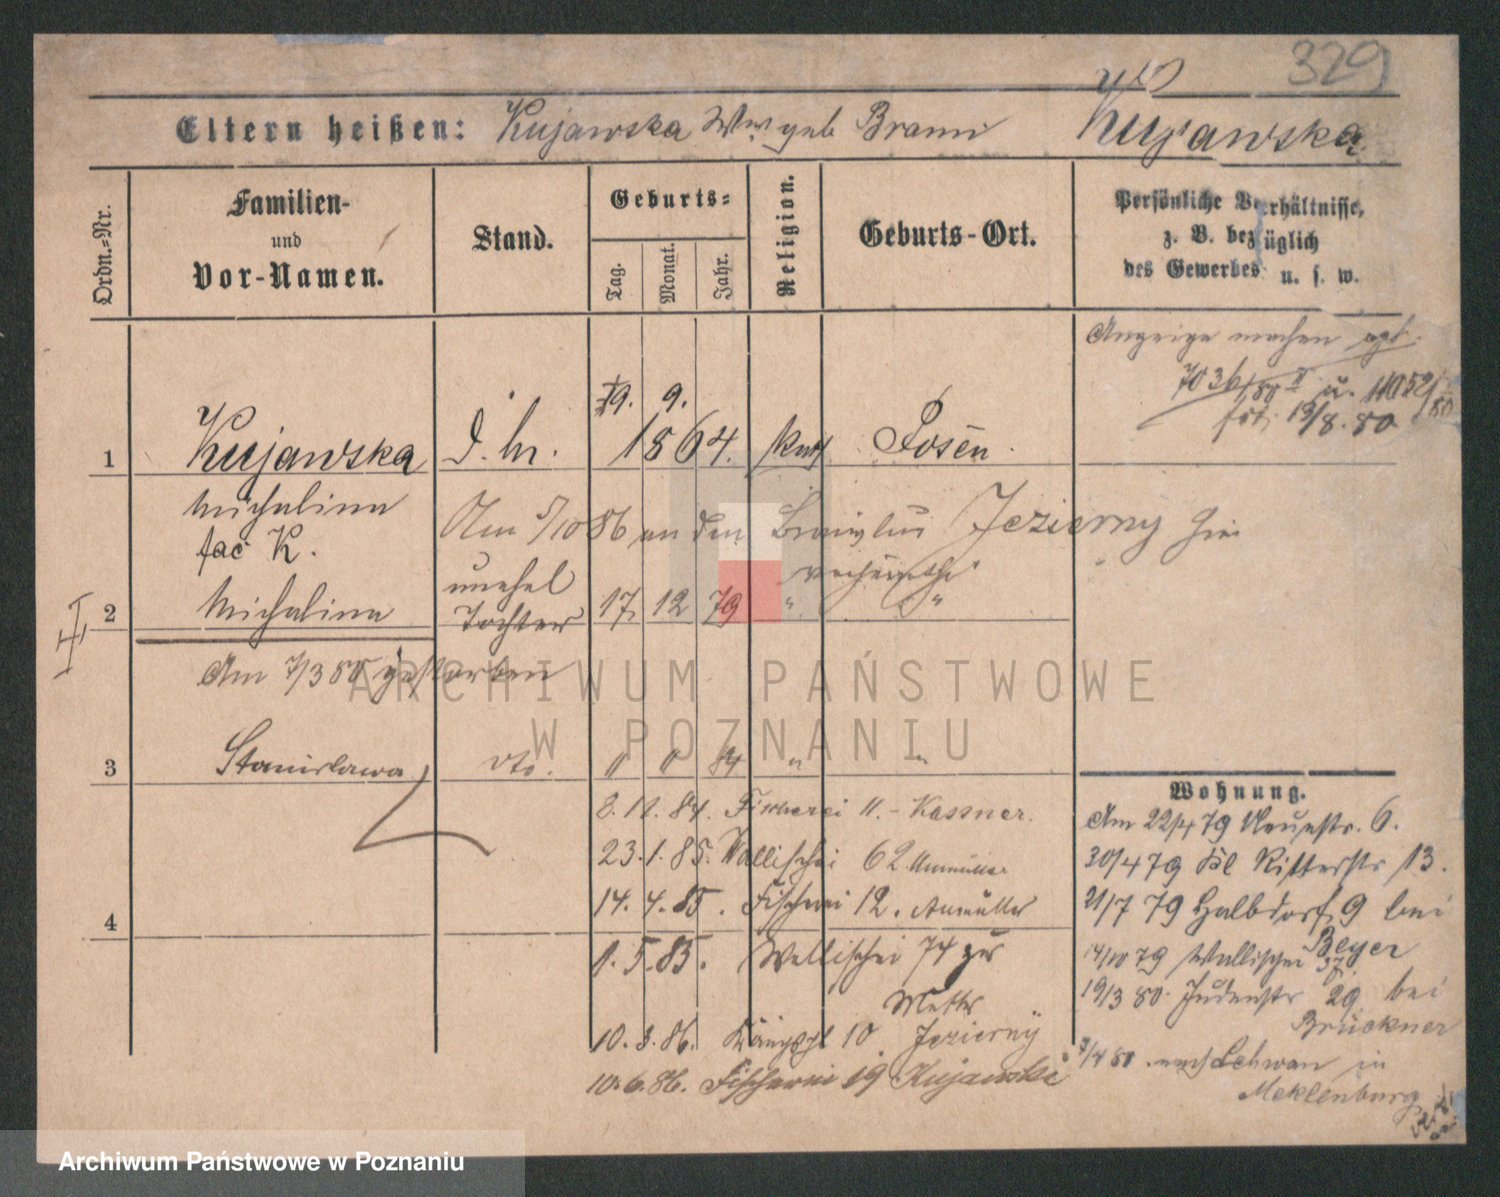 329
Eltern heißen: Kujawska Ww. geb Brann Kujawska
Ordn.=Nr.
Familien-
und
Vor-Namen.
Stand.
Geburts=
Tag.
Monat.
Jahr.
Religion.
Geburts-Ort.
Persönliche Verhältnisse,
z. B. bezüglich
des Gewerbes u. s. w.
Anzeige machen
7036/80 II u. 11052/80
13/8. 80
19. 9.
1 Kujawska 1864. kath Posen.
Michalina
K.
Am 5/10 86 an den Jezierny hier
unehel
2 Michalina Tochter 17. 12 79 " "
Am 7/3 80 gestorben
3 Stanisława dto. 84 " "
8.11.84. Fischerei 11.- Kassner.
23.1.85. Wallischei 62
14.4.85. Fischerei 12. Aumüller
4
1.5.85. Wallischei 74 zur
Mutter
10.3.86. 10 Jezierny
10.6.86. Fischerei 19 Kujawski
Wohnung.
Am 22/4 79 Neuestr. 6.
30/4 79 Kl Ritterstr 13.
21/7 79 Halbdorf 9 bei
Beyer
14/10 79 Wallischei 37.
19/3 80. Judenstr 29 bei
Brückner
7/4 80 nach Schwan in
Meklenburg
ARCHIWUM PAŃSTWOWE
W POZNANIU
Archiwum Państwowe w Poznaniu